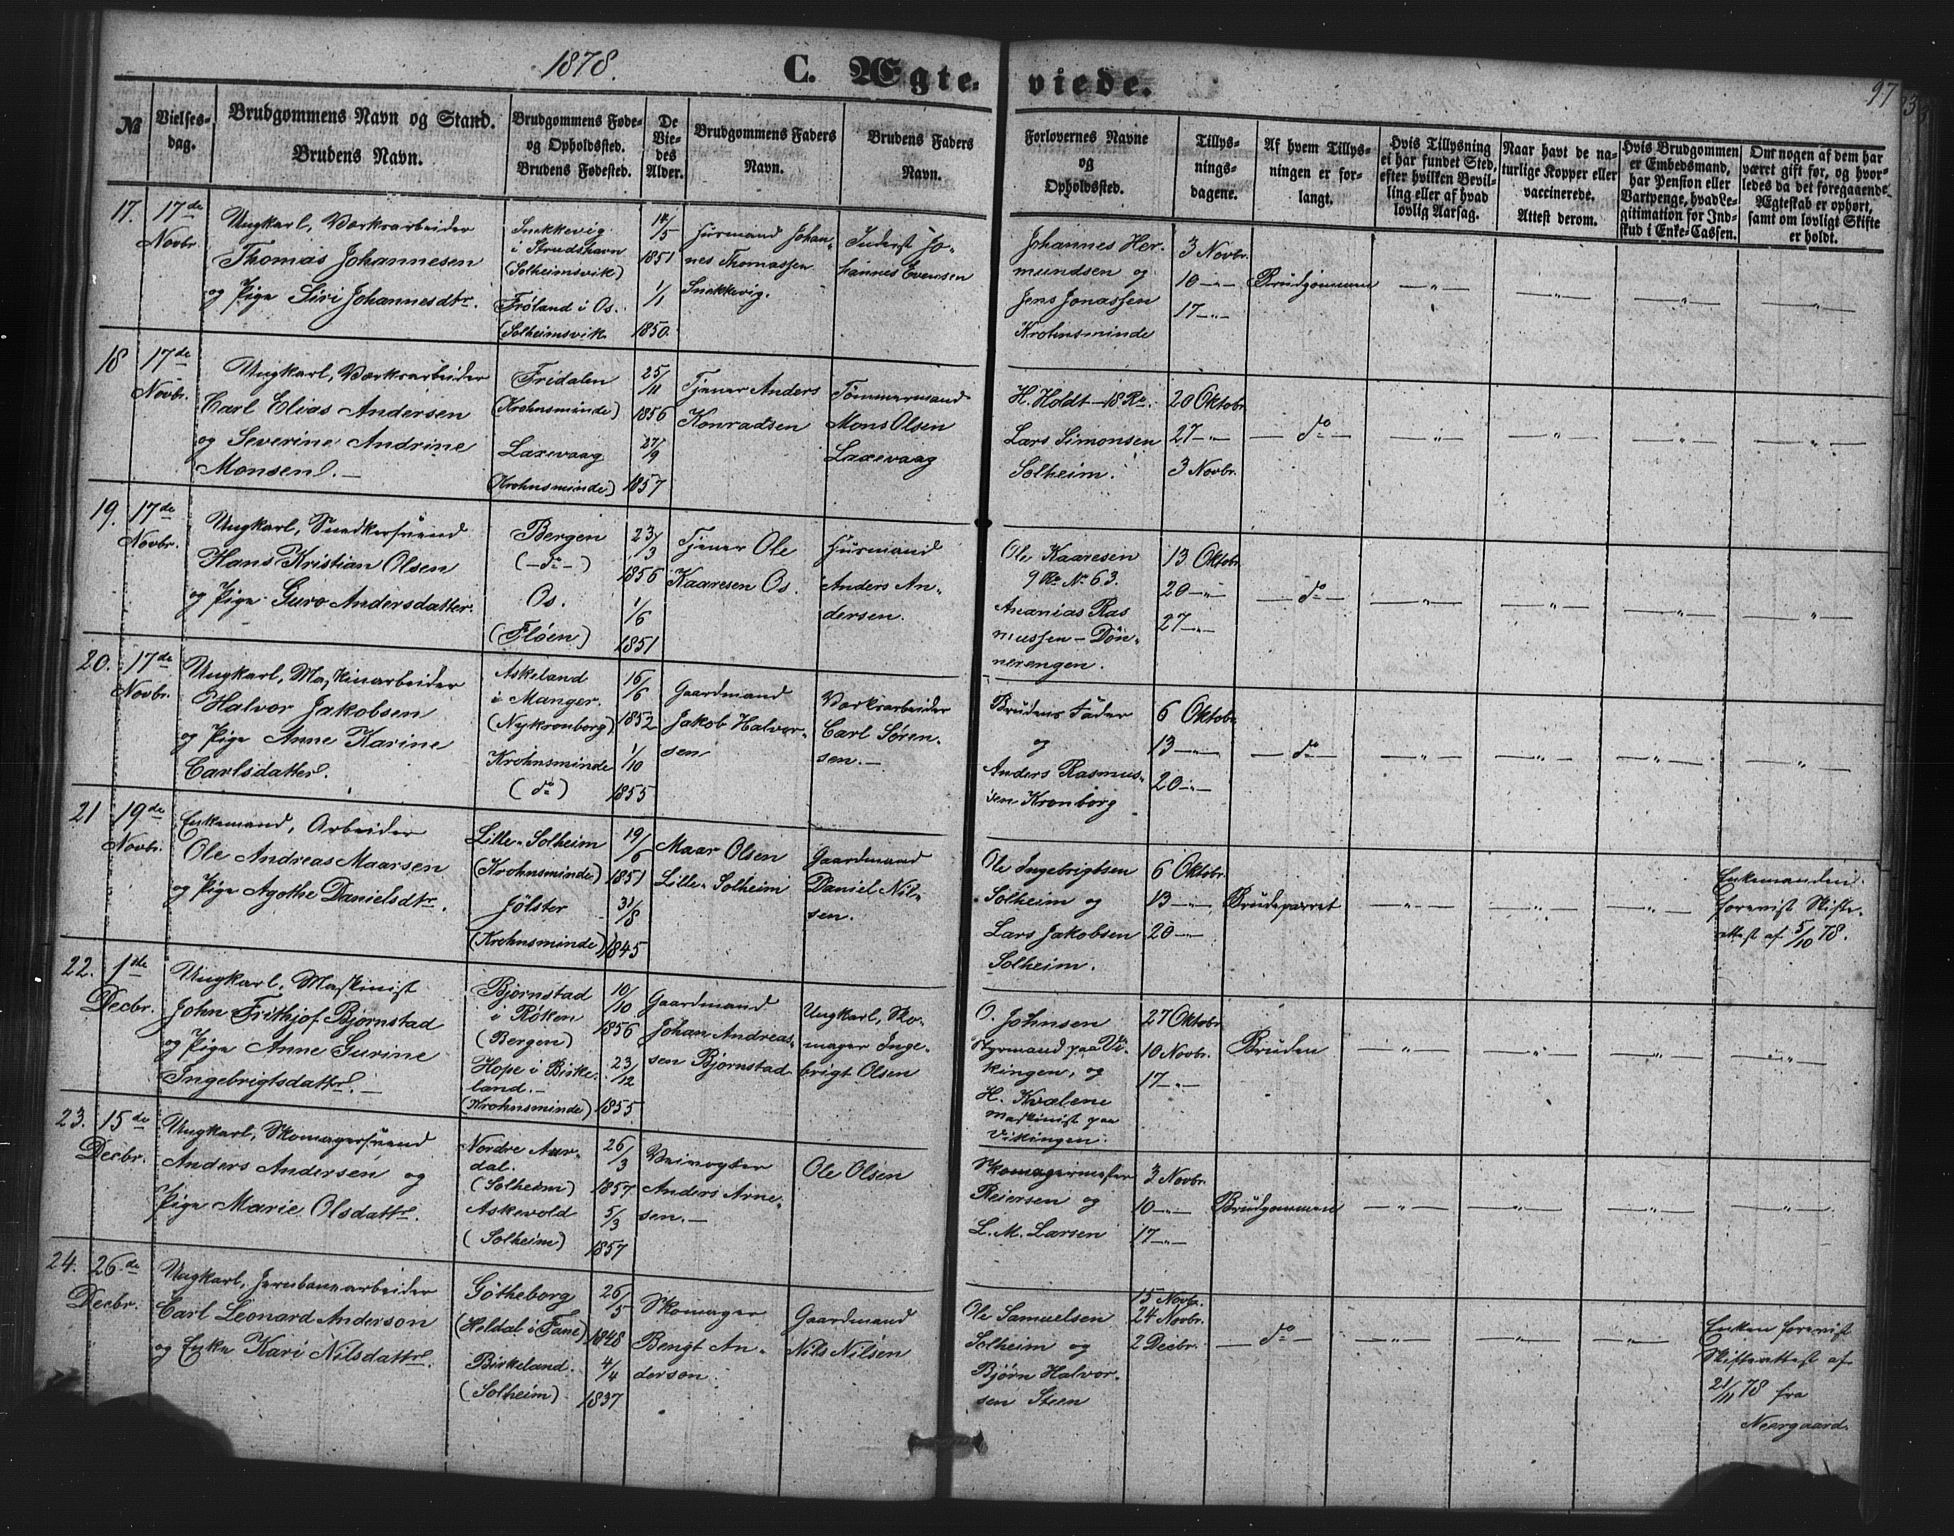 1878.
C. Ægteviede.
97
№
Vielsesdag.
Brudgommens Navn og Stand.
Brudens Navn.
Brudgommens Føde- og Opholdssted.
Brudens Fødested.
De Viedes Alder.
Brudgommens Faders Navn.
Brudens Faders Navn.
Forlovernes Navne og Opholdssted.
Tillysningsdagene.
Af hvem Tillysningen er forlangt.
Hvis Tillysning ei har fundet Sted, efter hvilken Bevilling eller af hvad lovlig Aarsag.
Naar havt de naturlige Kopper eller vaccinerede. Attest derom.
Hvis Brudgommen er Embedsmand, har Pension eller Vartpenge, hvad Legitimation for Indskud i Enke-Cassen.
Om nogen af dem har været gift før, og hvorledes da det foregaaende Ægteskab er ophørt, samt om lovligt Skifte er holdt.
17.
17de Novbr.
Ungkarl, Værksarbeider
Thomas Johannesen
og Pige Siri Johannesdtr.
Snekkevig
i Strudshavn
(Solheimsvik)
Frøland i Os.
(Solheimsvik
14/5 1851
1/1 1850.
Husmand Johan-
nes Thomassen
Snekkevig.
Inderst Jo-
hannes Evensen
Johannes Her-
mundsen og
Jens Jonassen
Krohnsminde
3 Novbr.
10 —"—
17 —"—
Brudgommen
—"— —"— —"— —"—
18
17de Novbr.
Ungkarl, Værksarbeider
Carl Elias Andersen
og Severine Andrine
Monsen. —
Fridalen
(Krohnsminde)
Laxevaag
(Krohnsminde)
25/11 1856
27/9 1857
Tjener Anders
Konradsen
Tømmermand
Mons Olsen
Laxevaag
H. Holdt – 18 Ro.
Lars Simonsen
Solheim.
20 Oktobr
27 —"—
3 Novbr.
— do —
—"— —"— —"— —"—
19.
17de Novbr.
Ungkarl, Snedkersvend
Hans Kristian Olsen
og Pige Guro Andersdatter.
Bergen
(— do —)
Os.
(Fløen)
23/3 1856
1/6 1851
Tjener Ole
Kaaresen Os.
Husmand
Anders An-
dersen.
Ole Kaaresen
9 Ro No 63.
Ananias Ras
mussen – Døn-
nerengen.
13 Oktobr.
20 —"—
27 —"—
— do —
—"— —"— —"— —"—
20.
17de Novbr.
Ungkarl, Maskinarbeider
Halvor Jakobsen
og Pige Anne Karine
Carlsdatter.
Askeland
i Manger.
(Nykronborg)
Krohnsminde
(do)
16/6 1852
1/10 1855
Gaardmand
Jakob Halvor-
sen
Værksarbeider
Carl Søren-
sen. —
Brudens Fader
og
Anders Rasmus-
sen Kronborg
6 Oktobr
13 —"—
20 —"—
— do —
—"— —"— —"— —"—
21
19de Novbr.
Enkemand, Arbeider
Ole Andreas Maarsen
og Pige Agothe Danielsdtr.
Lille-Solheim
(Krohnsminde)
Jølster
(Krohnsminde)
19/6 1851
31/8 1845
Maar Olsen
Lille-Solheim
Gaardmand
Daniel Nil-
sen.
Ole Ingebrigtsen
Solheim og
Lars Jakobsen
Solheim.
6 Oktobr.
13 —"—
20 —"—
Brudeparret
—"— —"— —"—
Enkemanden
forevist Skifte-
attest af 5/10 78.
22.
1ste Decbr.
Ungkarl, Maskinist
John Frithjof Bjørnstad
og Pige Anne Gurine
Ingebrigtsdattr. —
Bjørnstad
i Røken
(Bergen)
Hope i Birke-
land. —
(Krohnsminde)
10/10 1856
23/12 1855
Gaardmand
Johan Andreas-
sen Bjørnstad
Ungkarl, Sko-
mager Inge-
brigt Olsen
O. Johnsen
Styrmand paa Vi-
kingen, og
H. Kvalene
maskinist paa
Vikingen.
27 Oktobr.
10 Novbr.
17 —"—
Bruden
—"— —"— —"— —"—
23.
15de Decbr.
Ungkarl, Skomagersvend
Anders Andersen og
Pige Marie Olsdattr.
Nordre Aur-
dal.
(Solheim)
Askevold
(Solheim)
26/3 1857
5/3 1857
Veivogter
Anders Arne-
sen. —
Ole Olsen
Skomagermester
Reiersen og
L. M. Larsen
3 Novbr.
10 —"—
17 —"—
Brudgommen
—"— —"— —"— —"—
24.
26de Decbr.
Ungkarl, Jernbanearbeider
Carl Leonard Anderson
og Enke Kari Nilsdattr.
Gøtheborg
(Holdal i Fane)
Birkeland.
(Solheim)
26/5 1848
4/4 1837
Skomager
Bengt An-
derson.
Gaardmand
Nils Nilsen
Ole Samuelsen
Solheim og
Bjørn Halvor-
sen Steen
15 Novbr.
24 Novbr.
2 Decbr.
— do —
—"— —"— —"—
Enken forevist
Skifteattest af
21/11 78 fra
Neergaard.